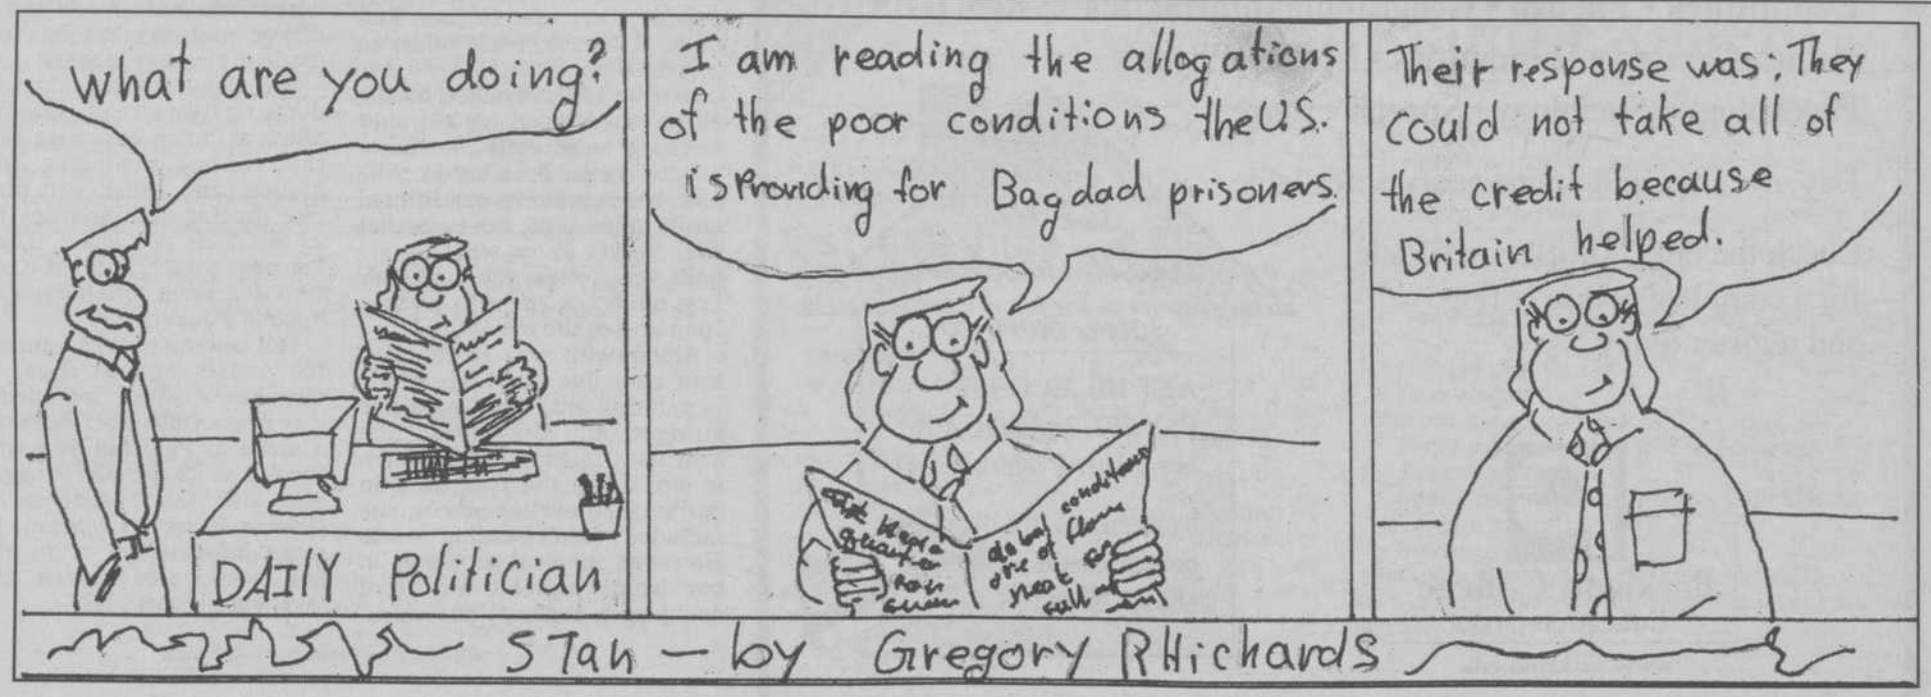 What are you doing?
DAILY Politician
I am reading the allogations
of the poor conditions the U.S.
is Providing for Bagdad prisoners.
conditions
Their response was: They
could not take all of
the credit because
Britain helped.
STan - by Gregory RHichards